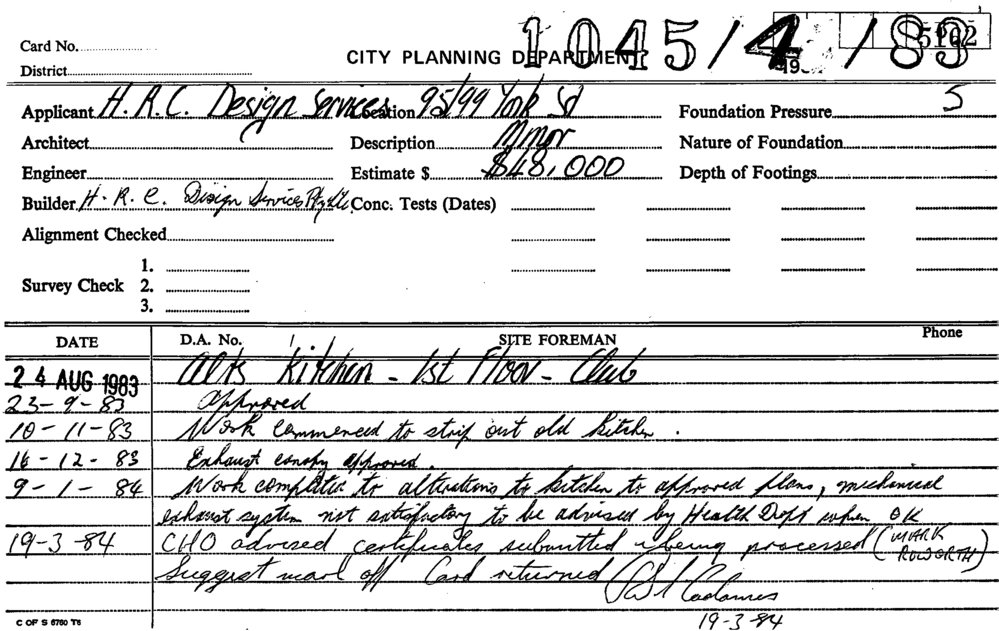 Card No.
1045/4/83
5162
District
CITY PLANNING DEPARTMENT
19
Applicant H. R.C. Design Services Location 95/99 York St Foundation Pressure 5
Architect Description Minor Nature of Foundation
Engineer Estimate $ $48,000 Depth of Footings
Builder H. R. C. Design Services Pty Ltd Conc. Tests (Dates)
Alignment Checked
1.
Survey Check 2.
3.
DATE D.A. No. SITE FOREMAN Phone
24 AUG 1983 Alts Kitchen - 1st Floor - Club
23-9-83 Approved
10-11-83 Work commenced to strip out old kitchen.
16-12-83 Exhaust canopy approved.
9-1-84 Work completed to alterations to kitchen to approved plans, mechanical
exhaust system not satisfactory to be advised by Health Dept when OK
19-3-84 CHO advised certificates submitted & being processed (MARK ROWORTH)
Suggest mark off Card returned
19-3-84
C OF S 6760 T6